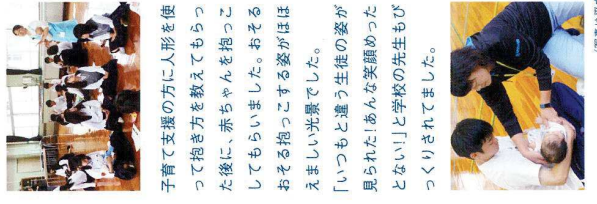 子育て支援の方に人形を使
って抱き方を教えてもらっ
た後に、赤ちゃんを抱っこ
してもらいました。おそる
おそる抱っこする姿がほほ
えましい光景でした。
「いつもと違う生徒の姿が
見られた！あんな笑顔めった
とない！」と学校の先生もび
っくりされてました。